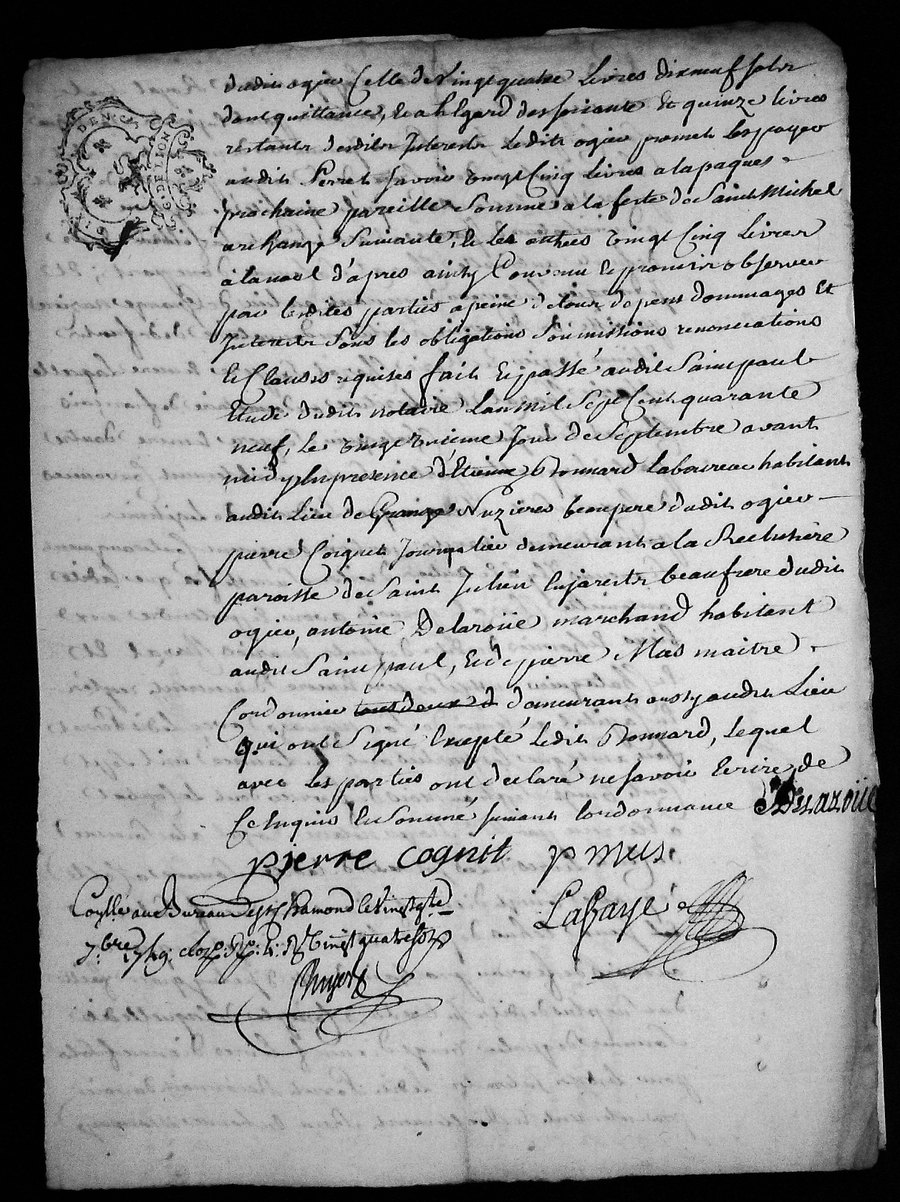 DEN
G. DE LION
dudit ogier Celle de Vingt quatre Livres dixneuf sols
dont quittance, Et a L'Egard des soixante Et quinze livres
restants desdits Interests Ledit ogier promet Les payer
audit Perret savoir vingt Cinq livres a la paques
prochaine pareille Somme a la feste de Saint Michel
archange Suivante, Et Les autres vingt Cinq Livres
a la noel d'apres ainsy Convenu Et promis observer
par lesdites parties a peine de tous depens dommages Et
Interests Sous les obligations Soumissions renonciations
Et Clauses requises fait Et passé audit Saint paul
Etude dudit notaire Lan mil Sept Cent quarante
neuf, Le vingt unieme Jour de Septembre avant
midy En presence d'Etienne Bonnard Laboureur habitant
audit Lieu de Nuzieres beaupere dudit ogier
pierre Coignet Journalier demeurant a la
paroisse de Saint Julien En jarests beaufrere dudit
ogier, antoine Delaroüe marchand habitant
audit Saint paul, Et de pierre Mas maitre
Cordonnier tous deux d demeurant aussy audit Lieu
qui ont Signé Excepté Ledit Bonnard, Lequel
avec Les parties ont declaré ne savoir Ecrire de
Ce Enquis Et Sommé suivant Lordonnance Delaroüe
pierre cognit p mas
au Bureau de St Chamond le Vingt
7.bre 1749 vingt quatre sols